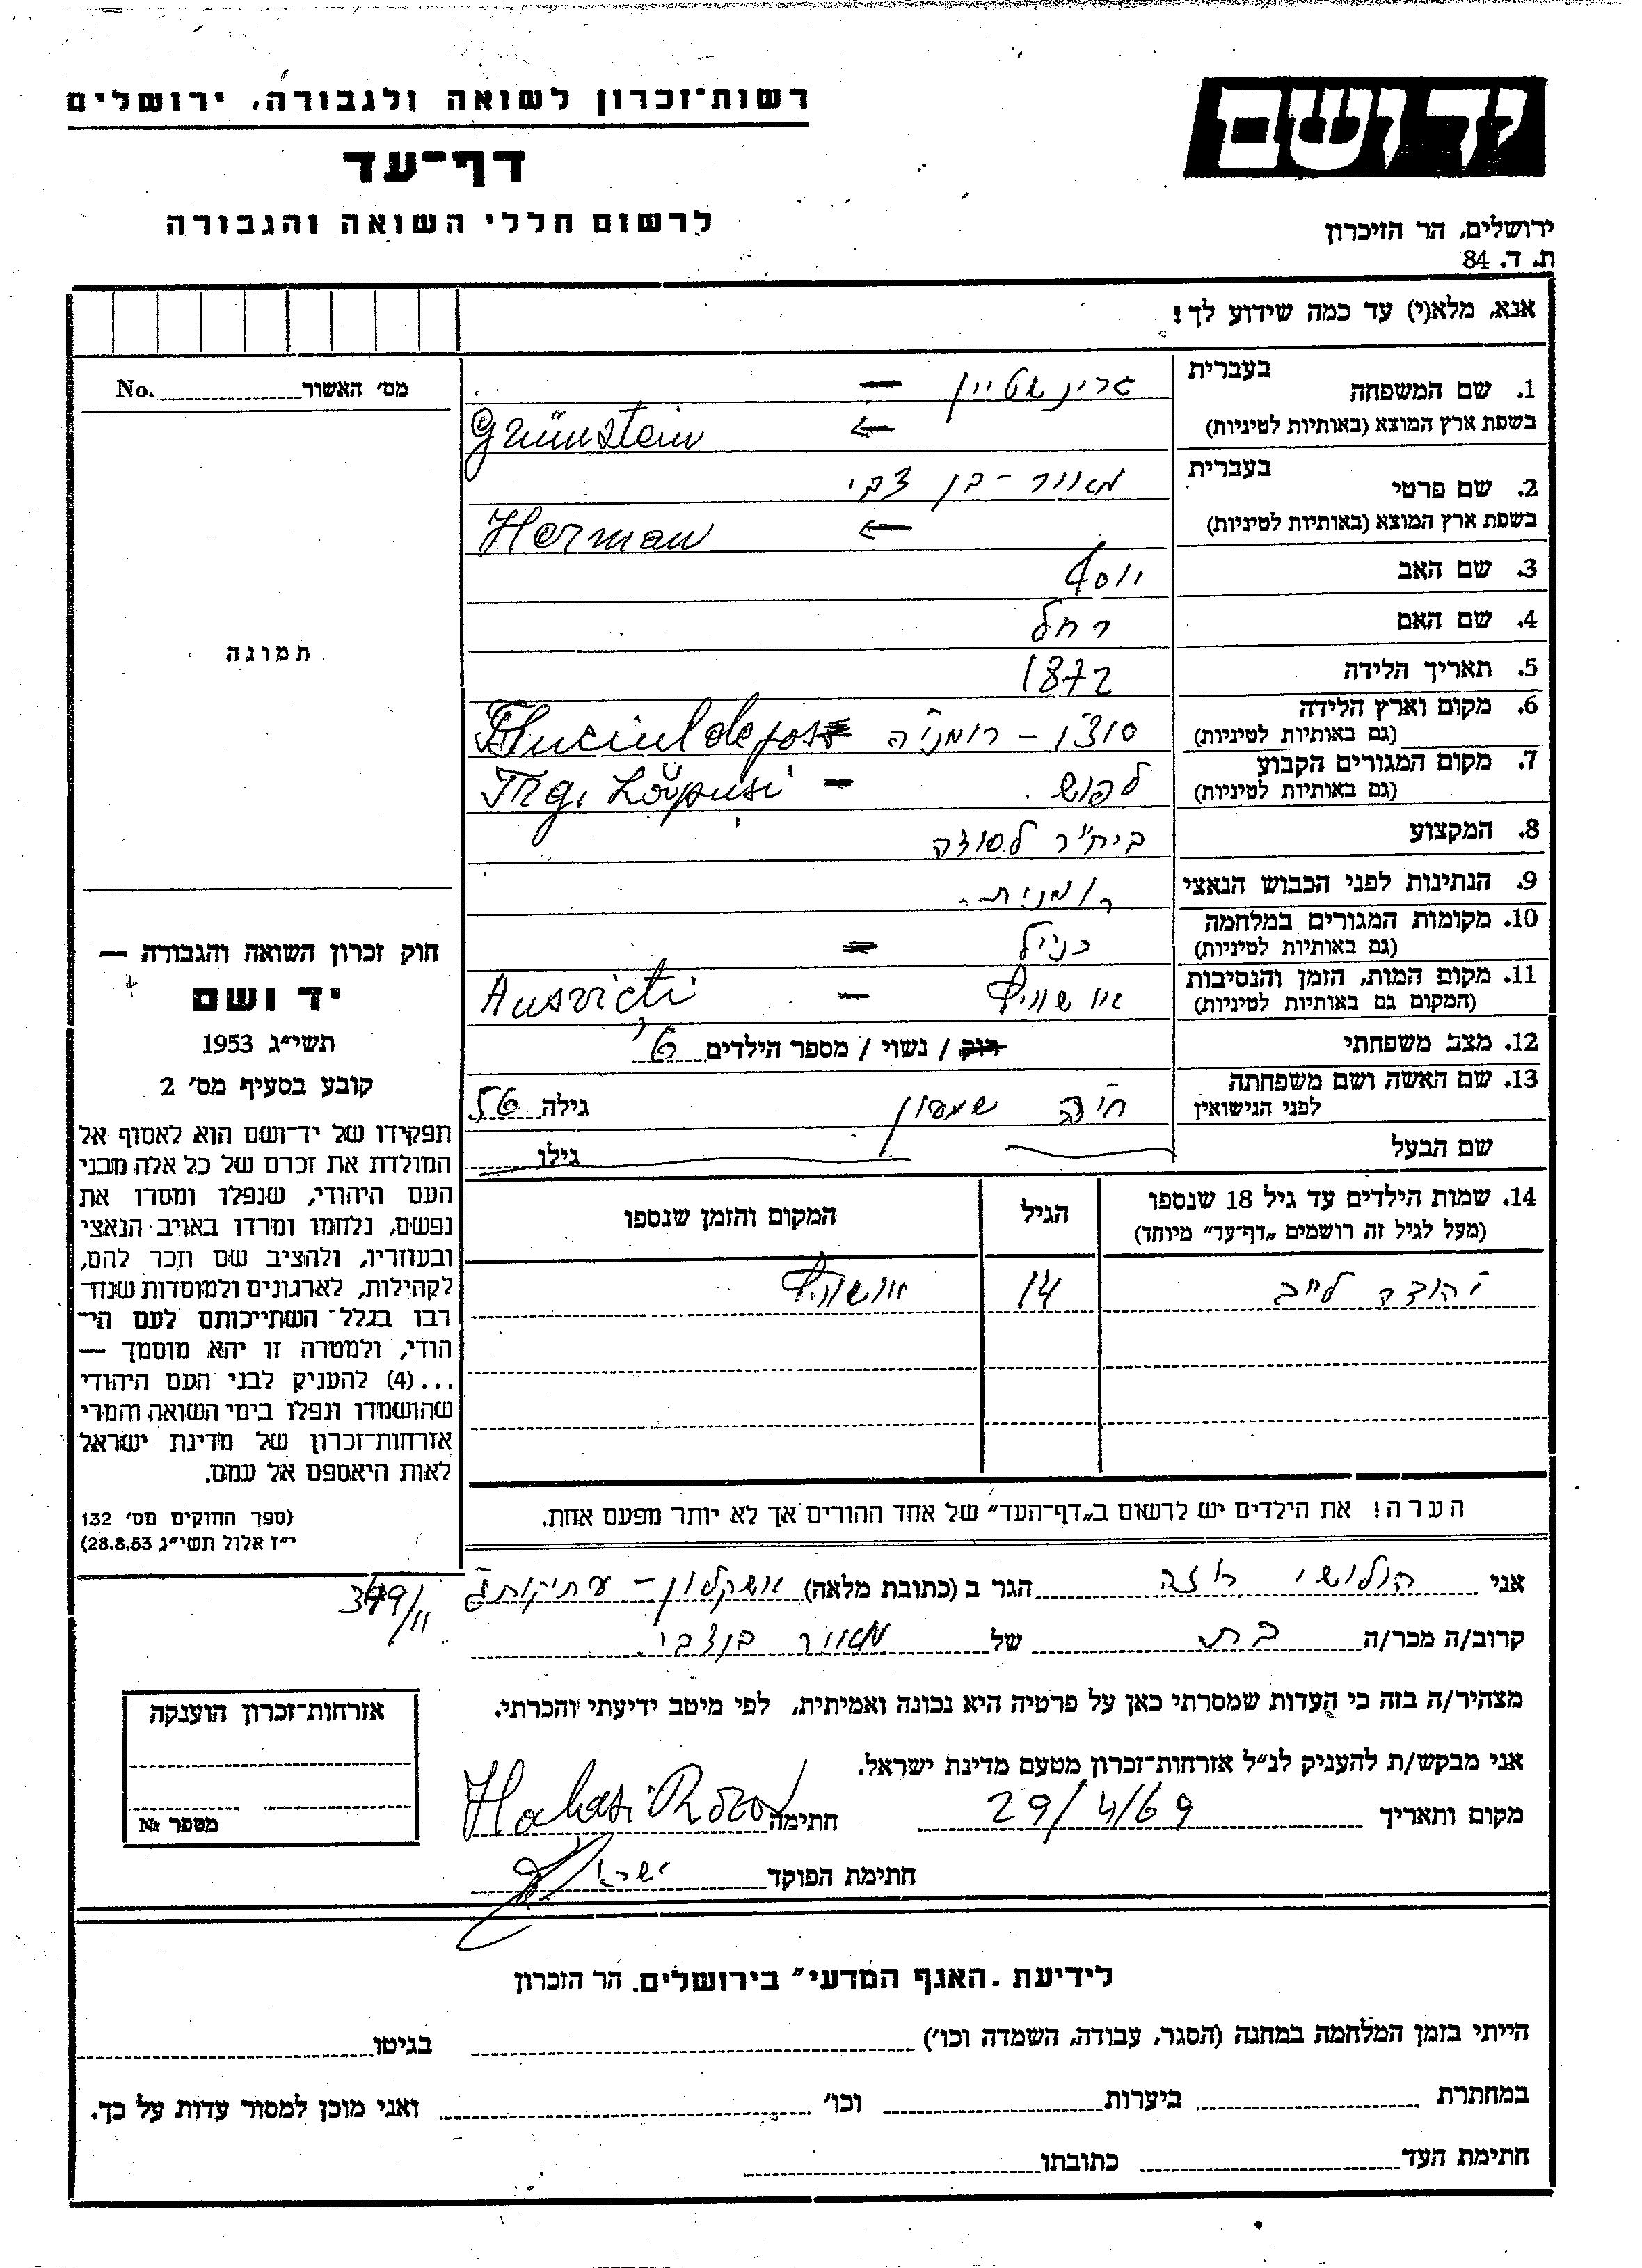 רשות־זכרון לשואה ולגבורה, ירושלים
יד ושם
דף־עד
לרשום חללי השואה והגבורה
ירושלים, הר הזיכרון
ת. ד. 84
אנא, מלא(י) עד כמה שידוע לך!
מס׳ האשור No.
תמונה
1. שם המשפחה בעברית גרינשטיין —
בשפת ארץ המוצא (באותיות לטיניות) ← Grünstein
2. שם פרטי בעברית מאיר - בן צבי
בשפת ארץ המוצא (באותיות לטיניות) ← Herman
3. שם האב יוסף
4. שם האם רחל
5. תאריך הלידה 1872
6. מקום וארץ הלידה
(גם באותיות לטיניות) - רומניה
7. מקום המגורים הקבוע
(גם באותיות לטיניות) לפוש - Trg. Lăpusi
8. המקצוע ביח״ר לסודה
9. הנתינות לפני הכבוש הנאצי רומנית.
10. מקומות המגורים במלחמה
(גם באותיות לטיניות) כנ״ל =
11. מקום המות, הזמן והנסיבות
(המקום גם באותיות לטיניות) אושוויץ - Ausvicti
12. מצב משפחתי רווק / נשוי / מספר הילדים 6
13. שם האשה ושם משפחתה
לפני הנישואין חיה שמעון גילה 56
שם הבעל גילו
14. שמות הילדים עד גיל 18 שנספו
(מעל לגיל זה רושמים „דף־עד״ מיוחד)
הגיל
המקום והזמן שנספו
יהודה לייב 14 אושוויץ
חוק זכרון השואה והגבורה —
יד ושם
תשי״ג 1953
קובע בסעיף מס׳ 2
תפקידו של יד־ושם הוא לאסוף אל
המולדת את זכרם של כל אלה מבני
העם היהודי, שנפלו ומסרו את
נפשם, נלחמו ומרדו באויב הנאצי
ובעוזריו, ולהציב שם וזכר להם,
לקהילות, לארגונים ולמוסדות שנח־
רבו בגלל השתייכותם לעם הי־
הודי, ולמטרה זו יהא מוסמך —
...(4) להעניק לבני העם היהודי
שהושמדו ונפלו בימי השואה והמרי
אזרחות־זכרון של מדינת ישראל
לאות היאספם אל עמם.
(ספר החוקים מס׳ 132
י״ז אלול תשי״ג 28.8.53)
הערה! את הילדים יש לרשום ב„דף־העד״ של אחד ההורים אך לא יותר מפעם אחת.
אני הולושי רוזה הגר ב (כתובת מלאה) אשקלון - עתיקות
קרוב/ה מכר/ה בת של מאיר בן צבי
מצהיר/ה בזה כי העדות שמסרתי כאן על פרטיה היא נכונה ואמיתית, לפי מיטב ידיעתי והכרתי.
אני מבקש/ת להעניק לנ״ל אזרחות־זכרון מטעם מדינת ישראל.
מקום ותאריך 29/4/69 חתימה
חתימת הפוקד
אזרחות־זכרון הוענקה
מספר №
לידיעת „האגף המדעי״ בירושלים, הר הזכרון
הייתי בזמן המלחמה במחנה (הסגר, עבודה, השמדה וכו׳) בגיטו
במחתרת ביערות וכו׳ ואני מוכן למסור עדות על כך.
חתימת העד כתובתו